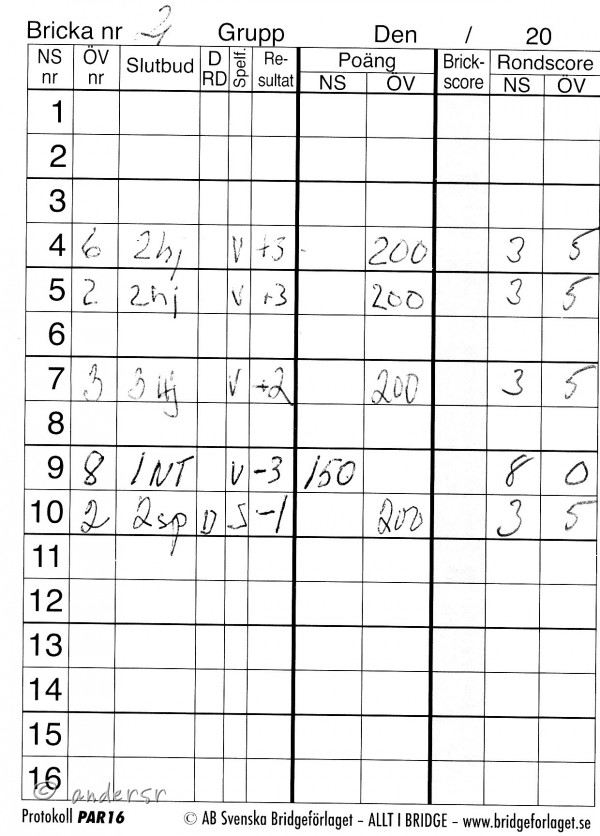 Bricka nr 2 Grupp Den / 20
NS nr ÖV nr Slutbud D RD Spelf. Re-sultat Poäng NS ÖV Brick-score Rondscore NS ÖV
1
2
3
4 6 2hj V +3 200 3 5
5 2 2hj V +3 200 3 5
6
7 3 3hj V +2 200 3 5
8
9 8 1NT V -3 150 8 0
10 2 2sp D S -1 200 3 5
11
12
13
14
15
16
© andersr
Protokoll PAR16 © AB Svenska Bridgeförlaget – ALLT I BRIDGE – www.bridgeforlaget.se